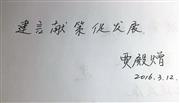 建言献策促发展
贾殿增
2016.3.12